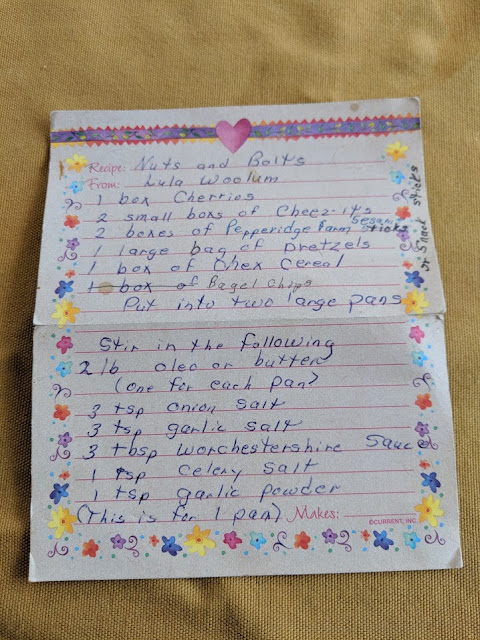 Recipe: Nuts and Bolts
From: Lula Woolum
1 box Cherries
2 small boxs of Cheez-its
2 boxes of Pepperidge Farm Sesame sticks
or snack sticks
1 large bag of Pretzels
1 box of Chex Cereal
1 box of Bagel Chips
Put into two large pans
Stir in the following
2 lb oleo or butter
(one for each pan)
3 tsp onion salt
3 tsp garlic salt
3 tbsp worchestershire Sauce
1 tsp celery salt
1 tsp garlic powder
(This is for 1 pan) Makes:
©CURRENT, INC.